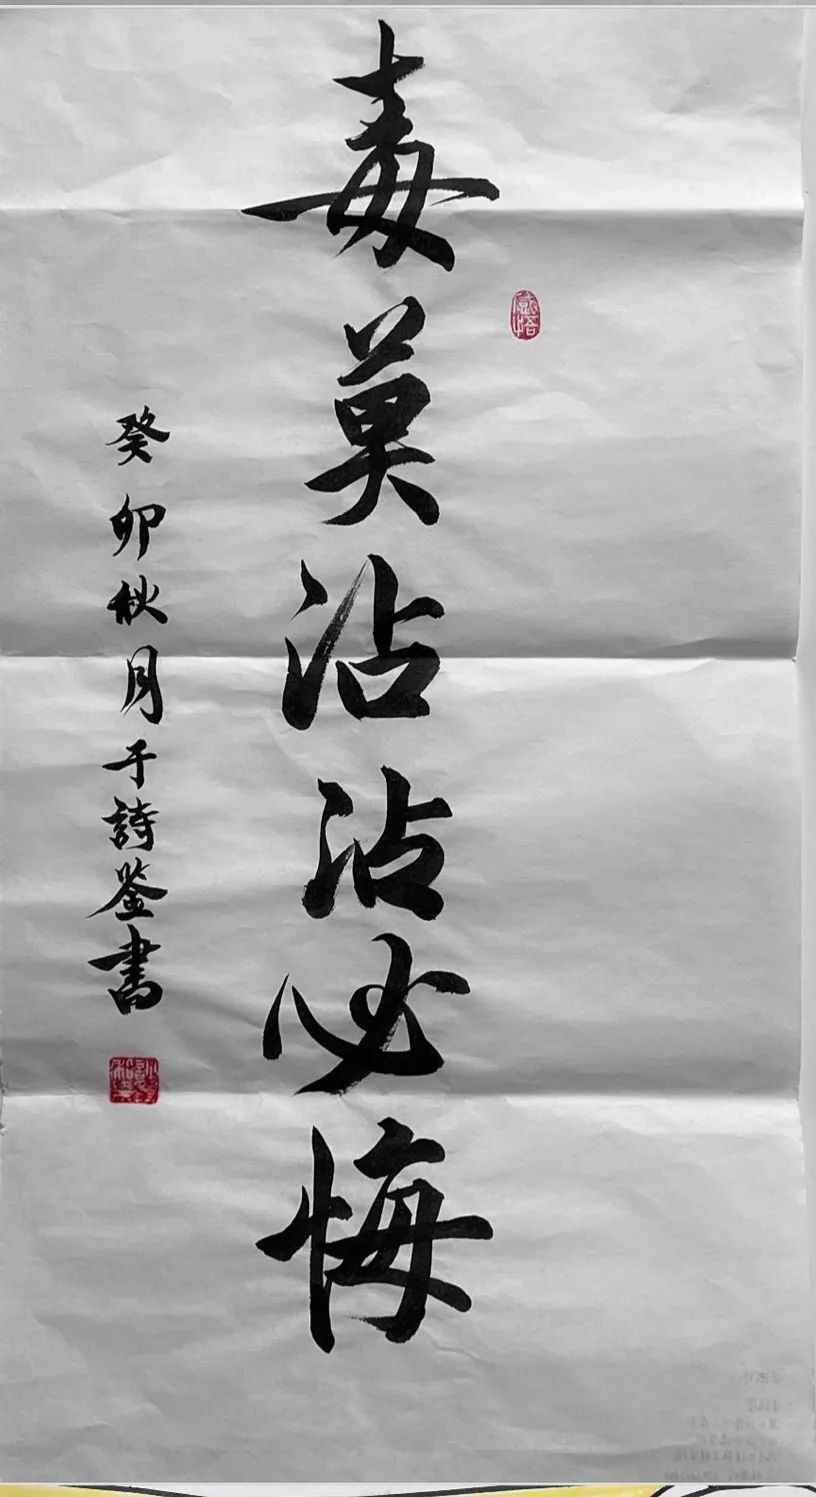 毒莫沾沾必悔
癸卯秋月于詩鉴書
感悟